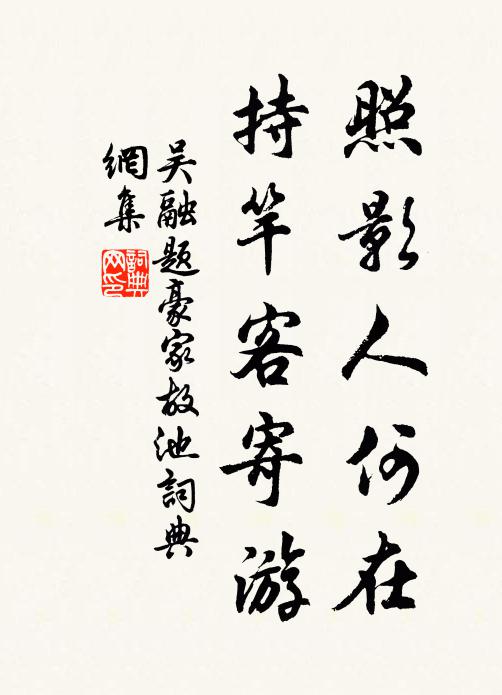 照影人何在
持竿客寄游
吴融题豪家故池詞典
網集
詞典
网印